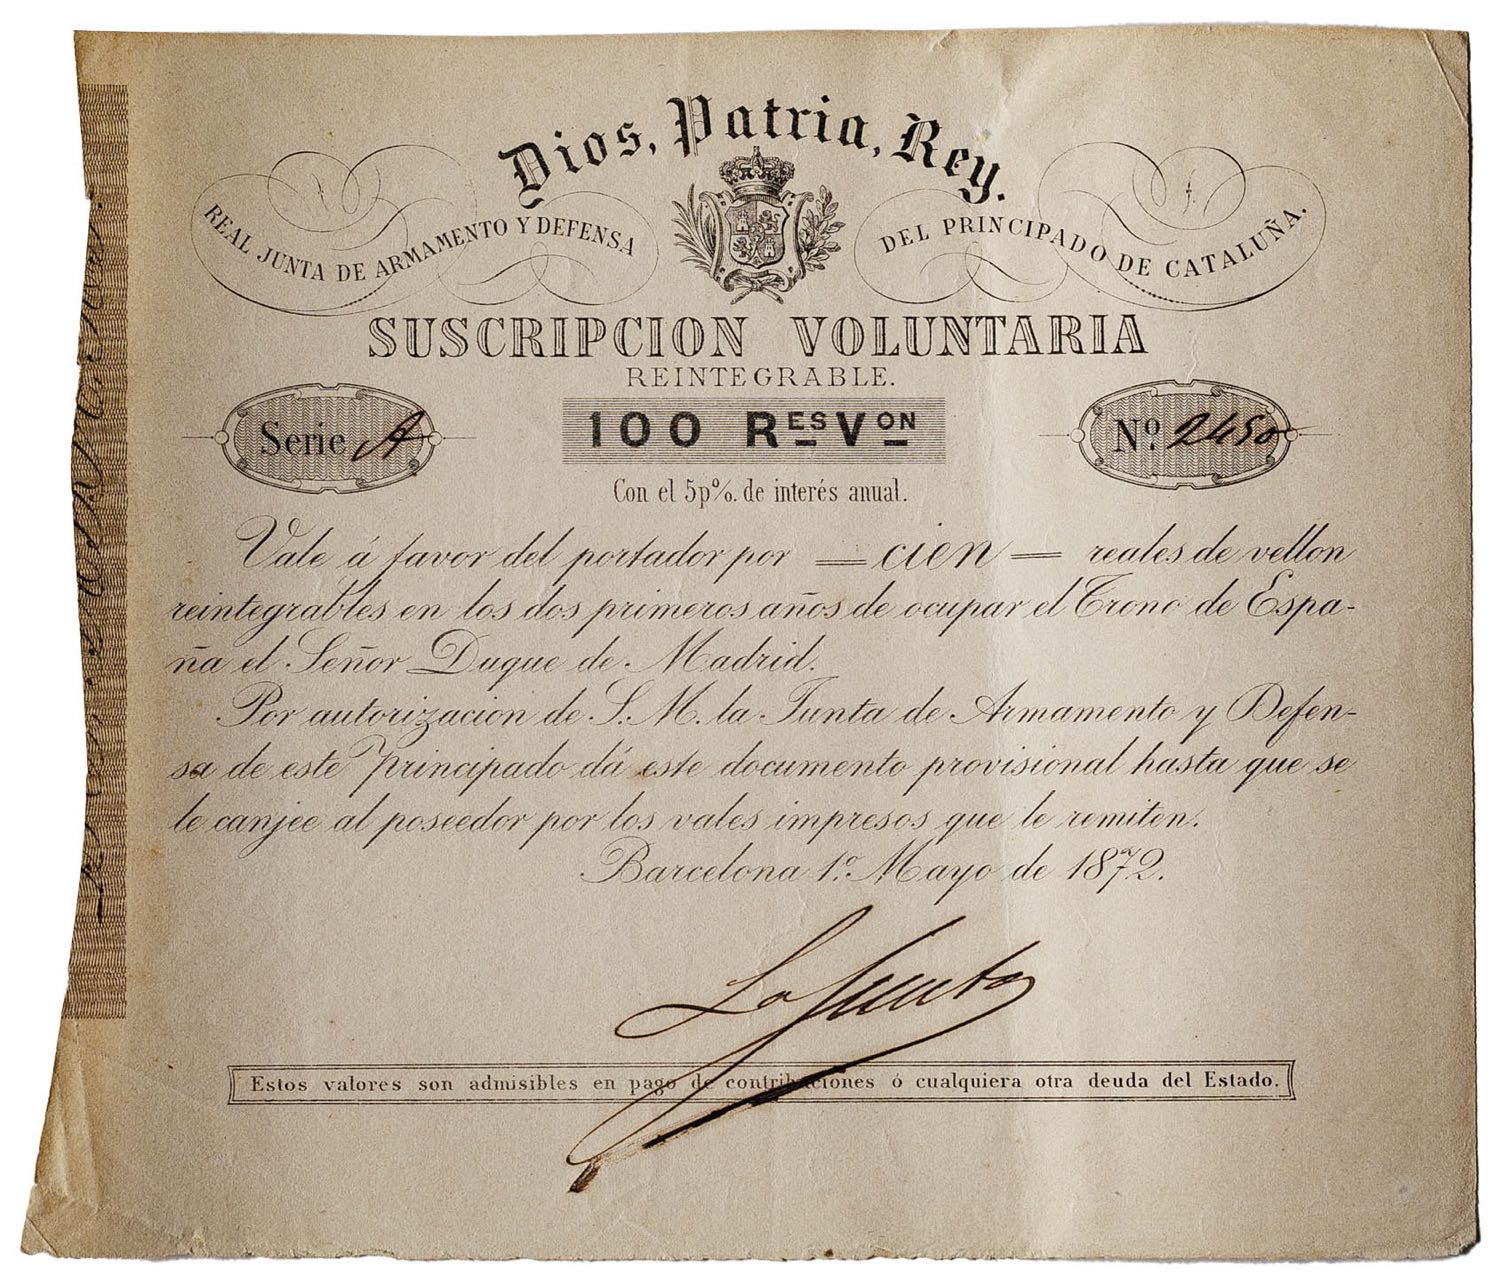 Dios, Patria, Rey.
REAL JUNTA DE ARMAMENTO Y DEFENSA DEL PRINCIPADO DE CATALUÑA.
SUSCRIPCION VOLUNTARIA
REINTEGRABLE.
Serie A
100 RES VON
Nº 2450
Con el 5 p% de interés anual.
Vale á favor del portador por = cien = reales de vellon
reintegrables en los dos primeros años de ocupar el Trono de Espa-
ña el Señor Duque de Madrid.
Por autorizacion de S. M. la Junta de Armamento y Defen-
sa de este Principado dá este documento provisional hasta que se
le canjee al poseedor por los vales impresos que le remiten.
Barcelona 1º Mayo de 1872.
La Junta
Estos valores son admisibles en pago de contribuciones ó cualquiera otra deuda del Estado.